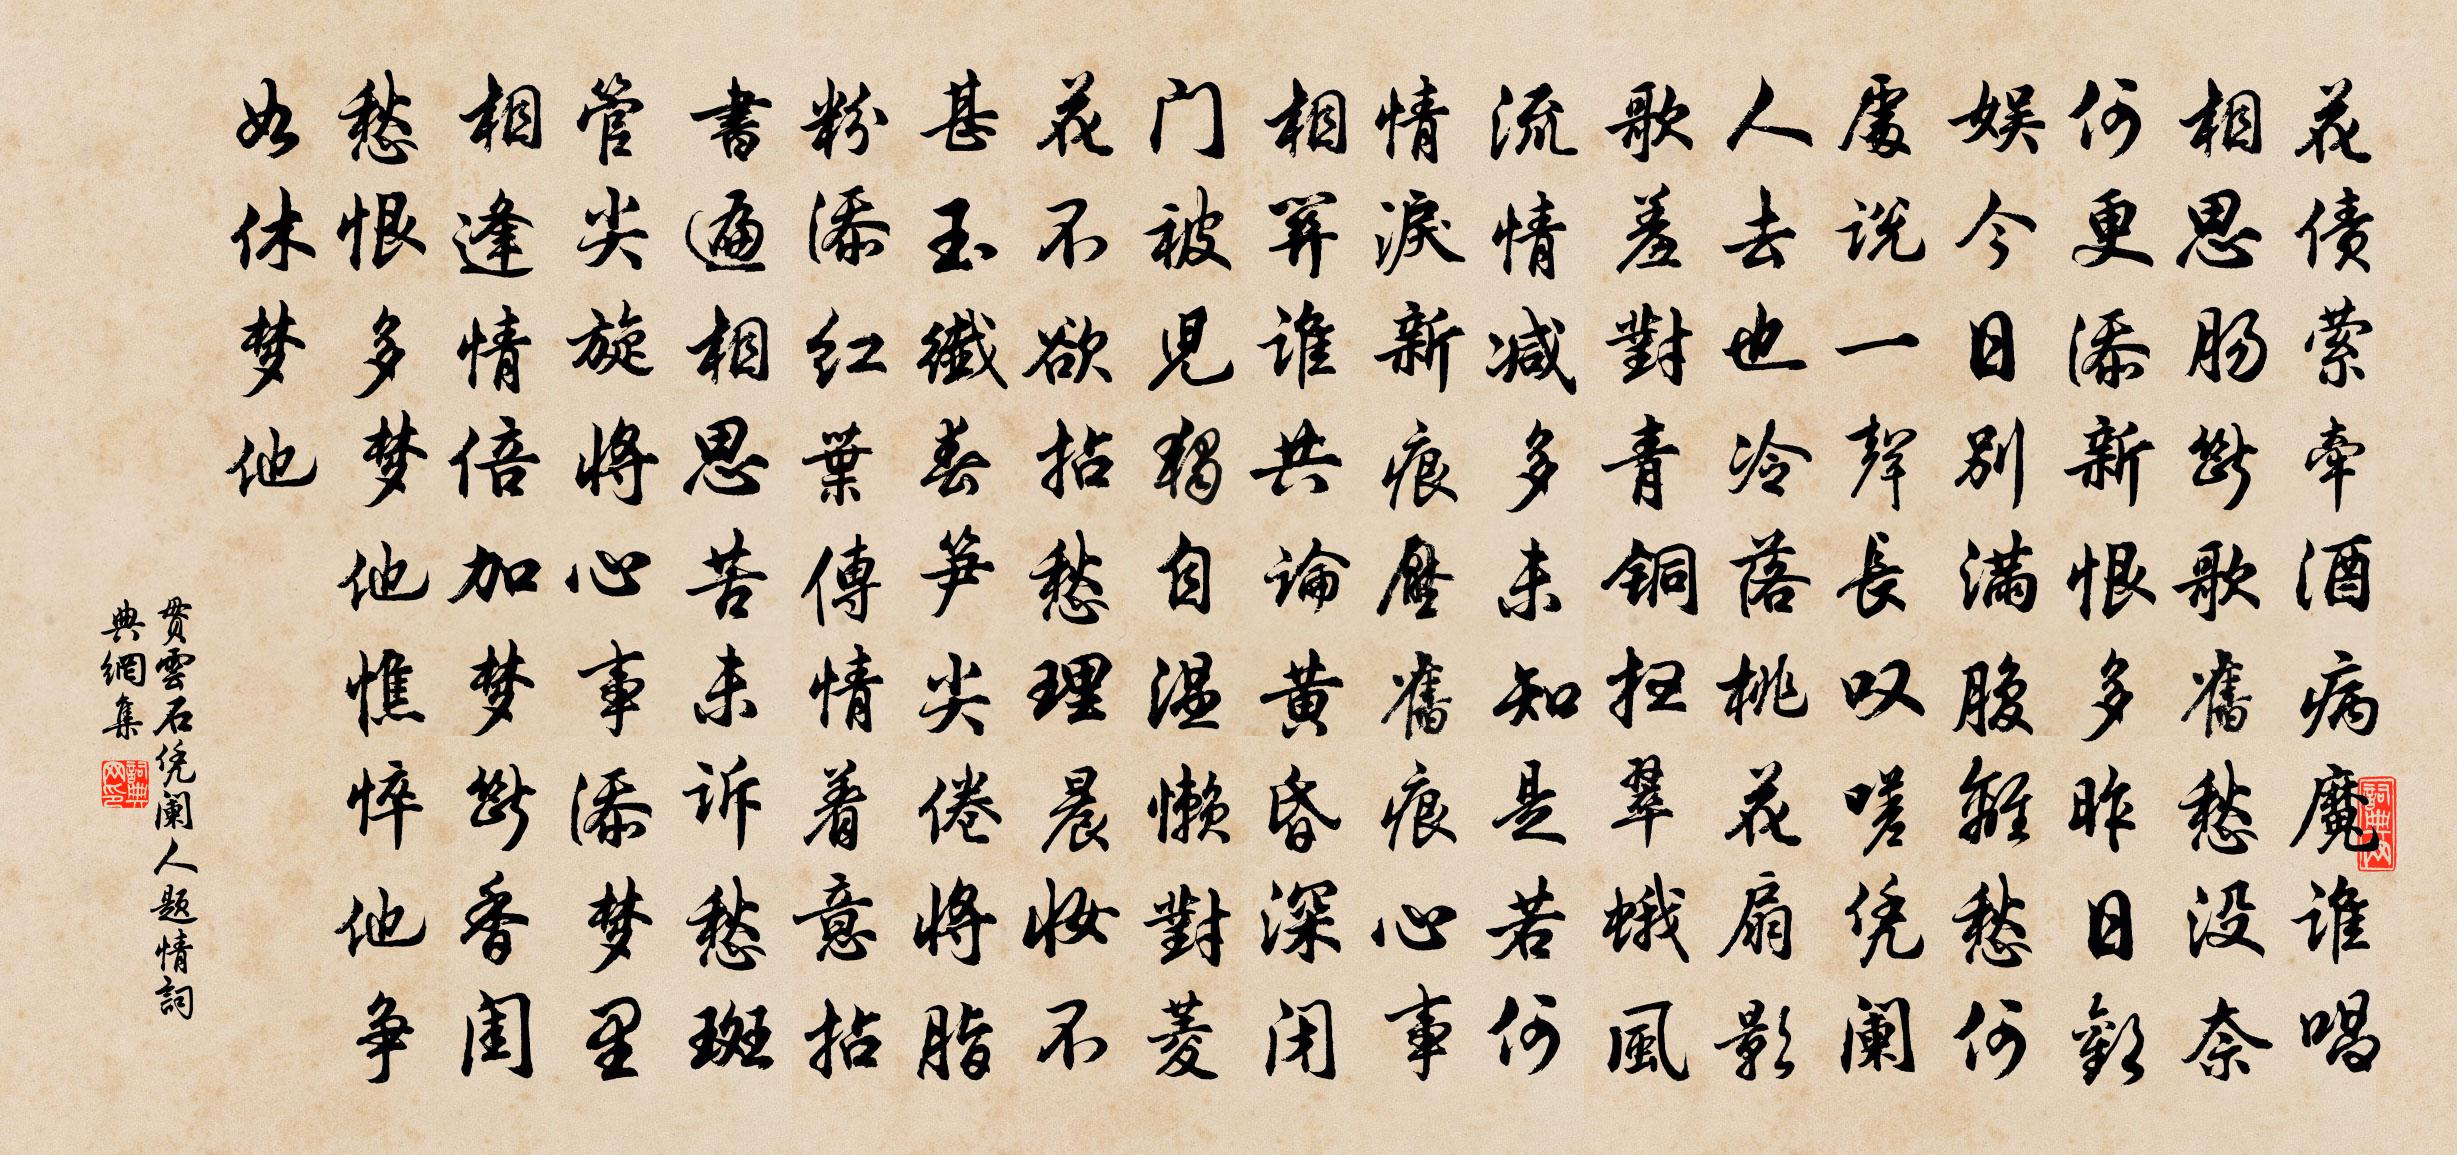 花债萦牵酒病魔谁唱
相思肠断歌旧愁没奈
何更添新恨多昨日欢
娱今日别满腹离愁何
处说一声长叹嗟凭阑
人去也冷落桃花扇影
歌羞對青铜扫翠蛾風
流情减多未知是若何
情淚新痕壓舊痕心事
相关谁共論黄昏深闭
门被儿独自温懒對菱
花不欲拈愁理晨妝不
甚玉纖春笋尖倦将脂
粉添红葉傳情着意拈
書遍相思苦未诉愁斑
管尖旋将心事添梦里
相逢情倍加梦断香闺
愁恨多梦他憔悴他争
如休梦他
贯雲石凭阑人题情詞
典網集
詞典网